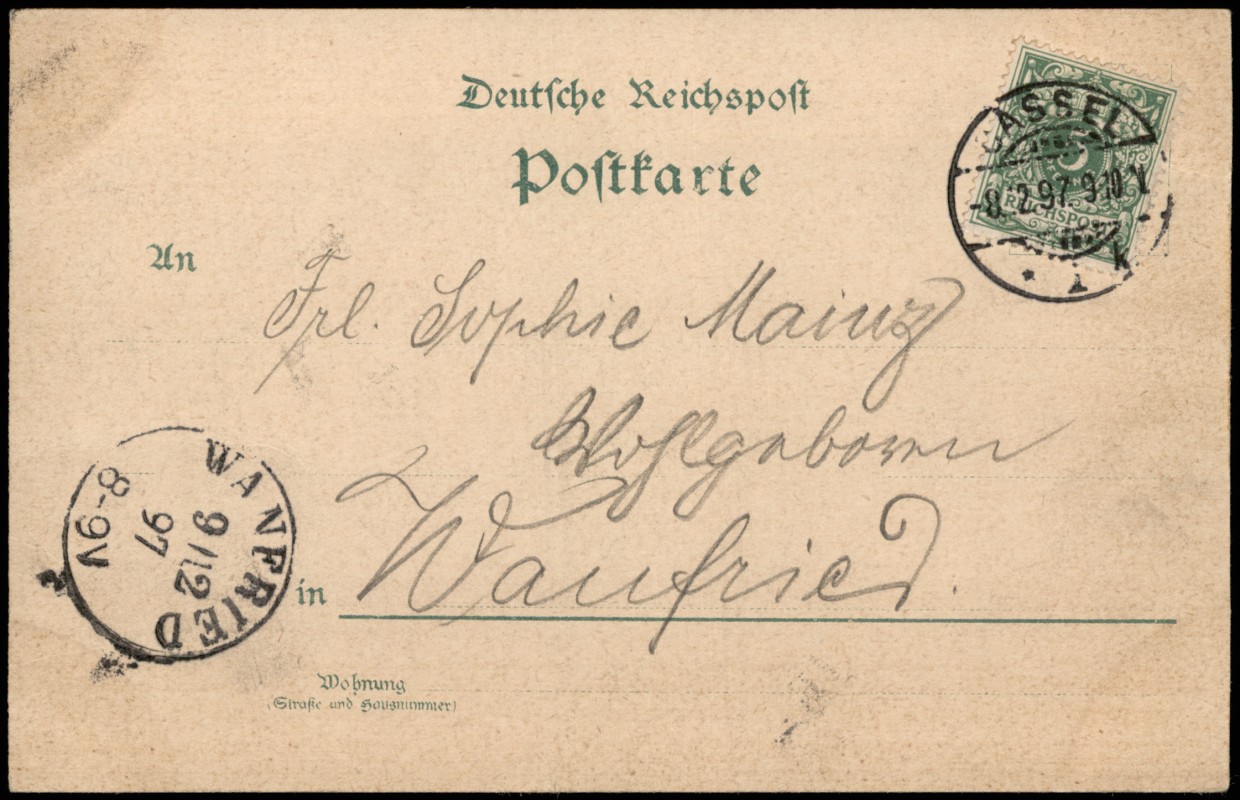 Deutsche Reichspost
Postkarte
CASSEL
-8.12.97. 9-10 V.
* 1 k
5
REICHSPOST
An
Frl. Sophie Mainz
Wohlgeboren
in Wanfried.
WANFRIED
9/12
97
8-9V
Wohnung
(Straße und Hausnummer)